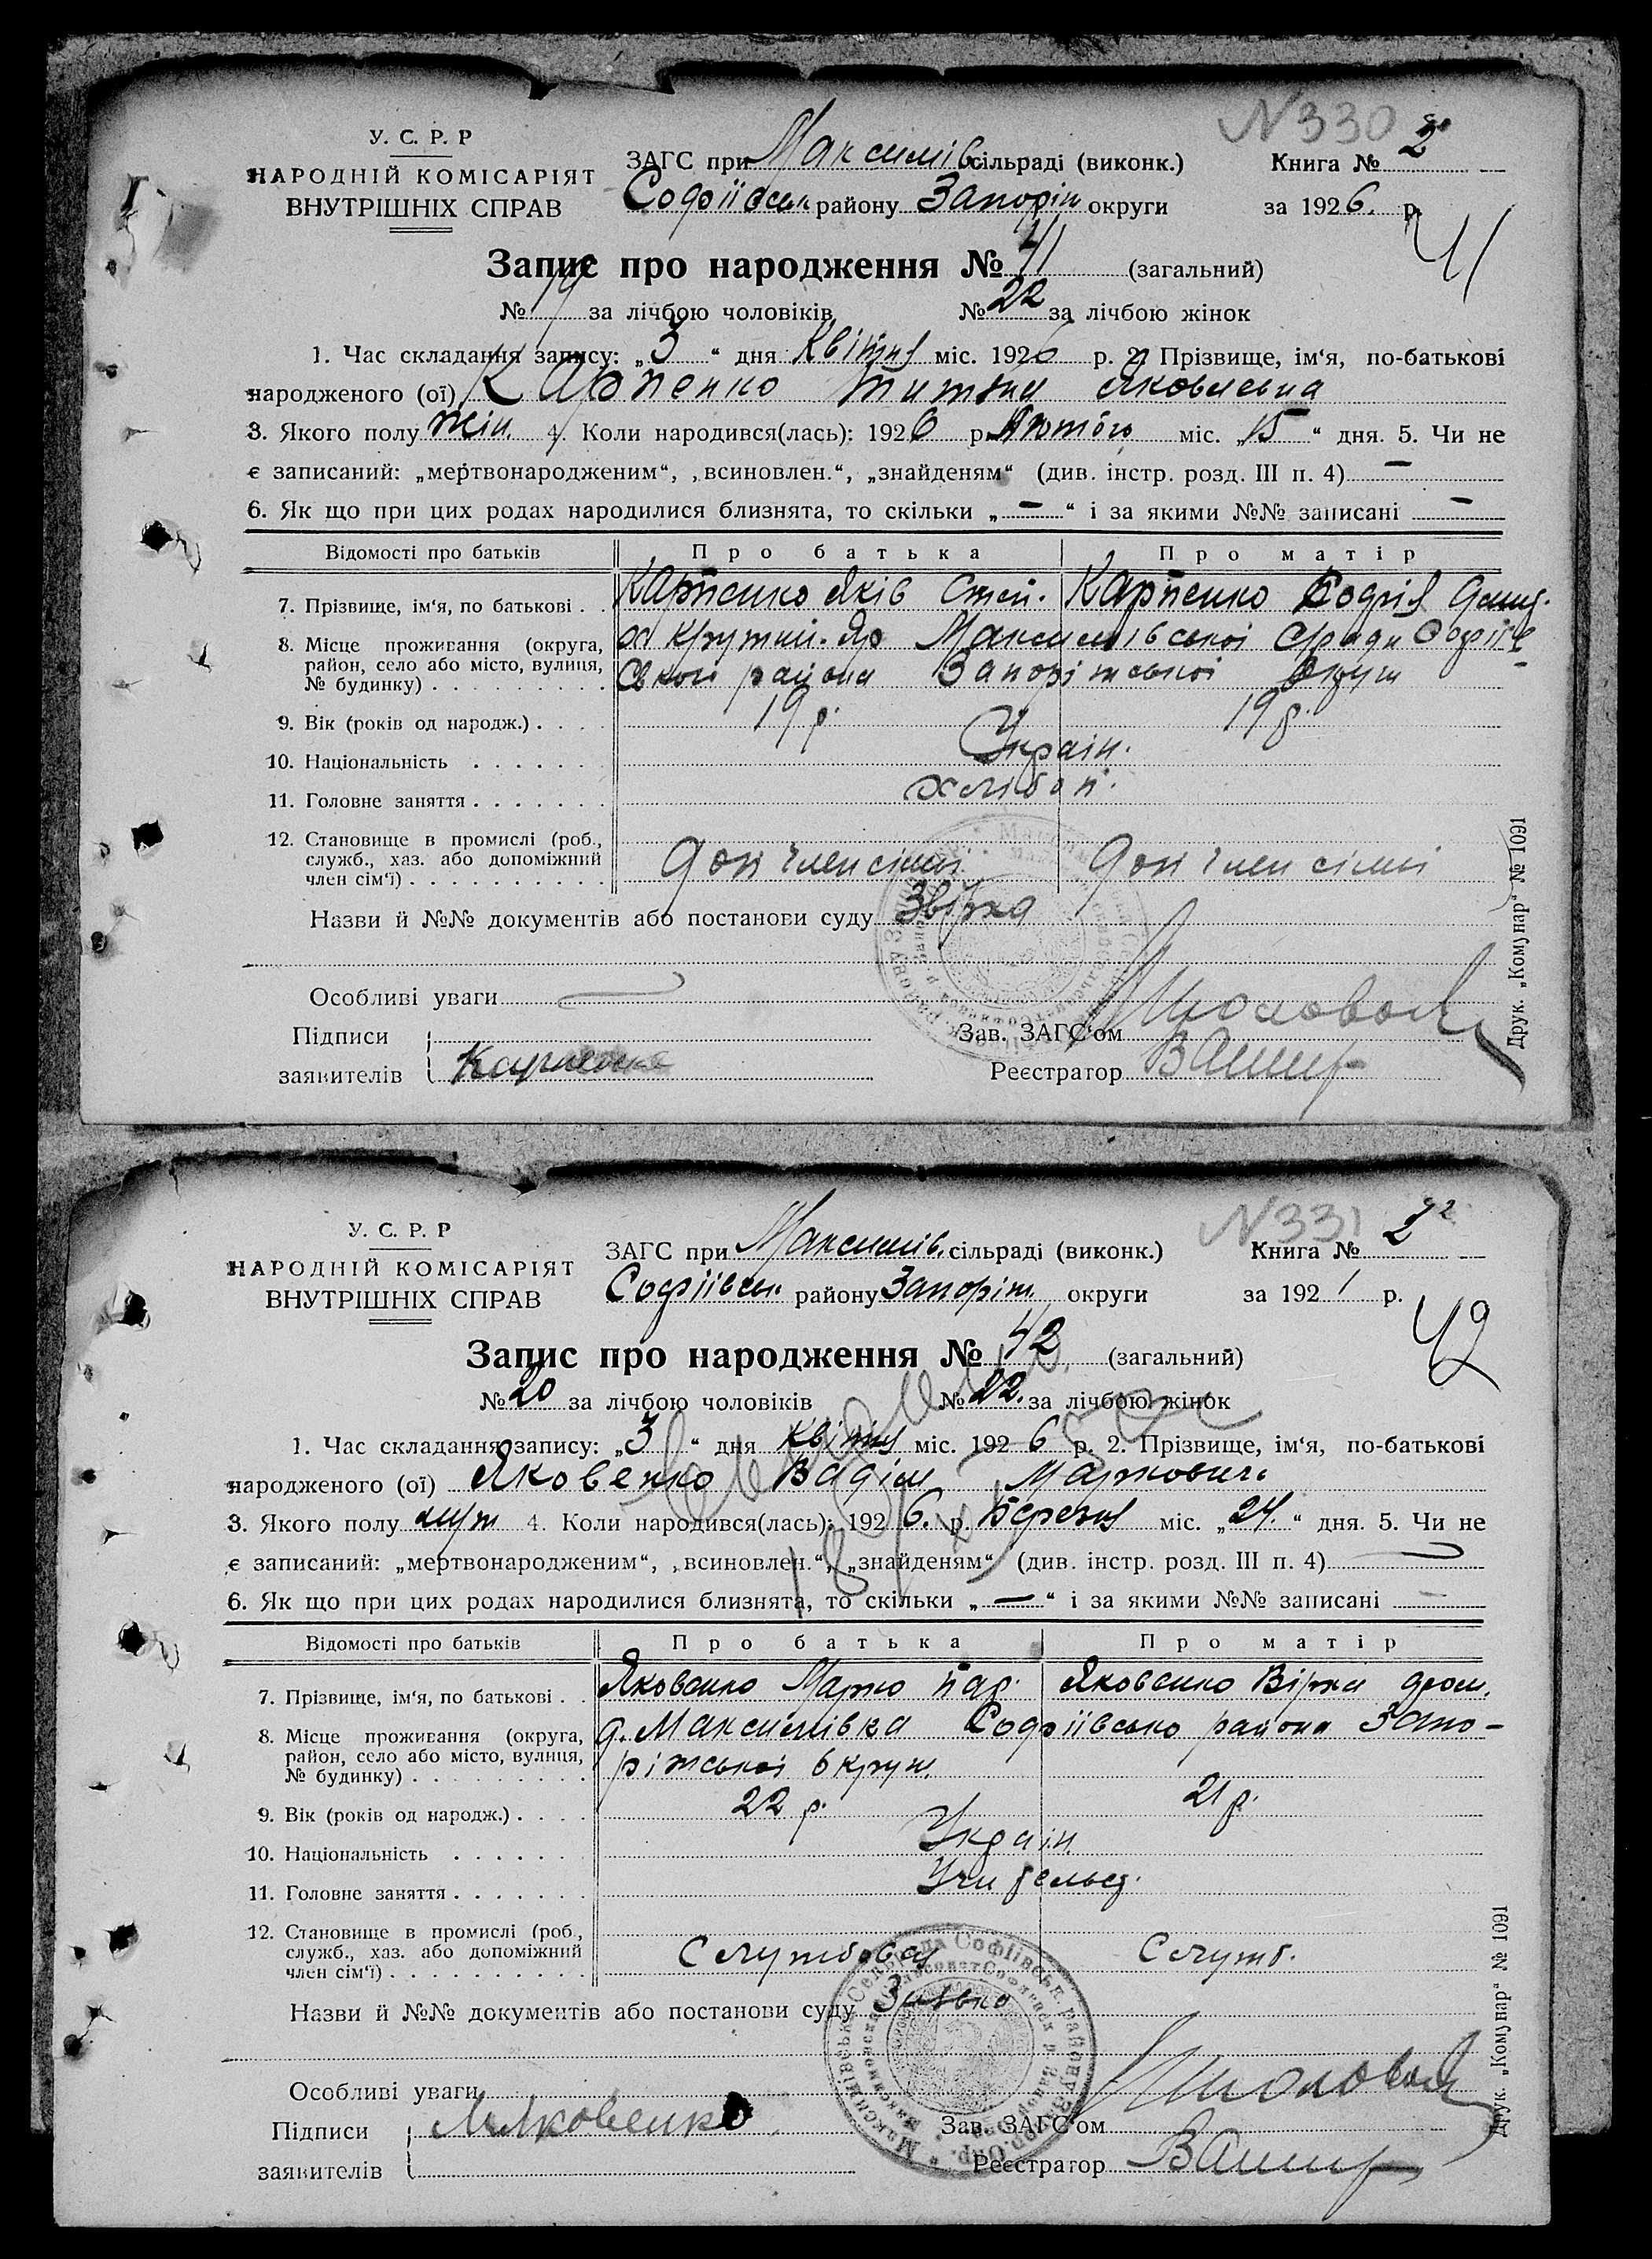 N330
У. С. Р. Р
НАРОДНІЙ КОМІСАРІЯТ
ВНУТРІШНІХ СПРАВ
ЗАГС при Максимів. сільраді (виконк.)
Книга № 2
Софіївськ району Запоріж округи
за 1926. р.
41
Запис про народження № 41 (загальний)
№ за лічбою чоловіків № 22 за лічбою жінок
1. Час складання запису: „3“ дня Квітня міс. 1926 р. 2. Прізвище, ім‘я, по-батькові
народженого (ої) Карпенко Яковлевна
3. Якого полу жін. 4. Коли народився(лась): 1926 р. Лютого міс. „15“ дня. 5. Чи не
є записаний: „мертвонародженим“, „всиновлен.“, „знайденям“ (див. інстр. розд. III п. 4) —
6. Як що при цих родах народилися близнята, то скільки „—“ і за якими №№ записані —
Відомості про батьків
Про батька
Про матір
7. Прізвище, ім‘я, по батькові . .
Карпенко Яків Степ.
Карпенко Софія
8. Місце проживання (округа,
район, село або місто, вулиця,
№ будинку) . . . . . . . . .
х Крутий-Яр Максимівської с/ради Софіїв
ського района Запоріжської Округи
9. Вік (років од народж.) . . . .
19 р.
19 р.
10. Національність . . . . . .
Україн.
11. Головне заняття . . . . . . .
хлібоп.
12. Становище в промислі (роб.,
служб., хаз. або допоміжний
член сім‘ї) . . . . . . . . . .
Доп член сімі
Доп член сімі
Назви й №№ документів або постанови суду
Особливі уваги
Підписи
заявителів
Карпенко
Зав. ЗАГС‘ом
Реєстратор
Друк. „Комунар“ № 1091
N331
У. С. Р. Р
НАРОДНІЙ КОМІСАРІЯТ
ВНУТРІШНІХ СПРАВ
ЗАГС при Максимів. сільраді (виконк.)
Книга № 2
Софіївськ. району Запоріж. округи
за 192 р.
42
Запис про народження № 42 (загальний)
№ 20 за лічбою чоловіків № 22. за лічбою жінок
1. Час складання запису: „3“ дня Квітня міс. 1926 р. 2. Прізвище, ім‘я, по-батькові
народженого (ої) Яковенко Вадім Маркович
3. Якого полу муж 4. Коли народився(лась): 1926. р. Березня міс. „24.“ дня. 5. Чи не
є записаний: „мертвонародженим“, „всиновлен.“, „знайденям“ (див. інстр. розд. III п. 4)
6. Як що при цих родах народилися близнята, то скільки „—“ і за якими №№ записані —
Відомості про батьків
Про батька
Про матір
7. Прізвище, ім‘я, по батькові . .
Яковенко Марко
Яковенко Віра
8. Місце проживання (округа,
район, село або місто, вулиця,
№ будинку) . . . . . . . . .
д. Максимівка Софіівсько района Запо-
ріжської Округи.
9. Вік (років од народж.) . . . .
22 р.
21 р.
10. Національність . . . . . .
Україн.
11. Головне заняття . . . . . . .
12. Становище в промислі (роб.,
служб., хаз. або допоміжний
член сім‘ї) . . . . . . . . . .
Службовая
Служб.
Назви й №№ документів або постанови суду
Особливі уваги
Підписи
заявителів
Яковенко
Зав. ЗАГС‘ом
Реєстратор
Друк. „Комунар“ № 1091